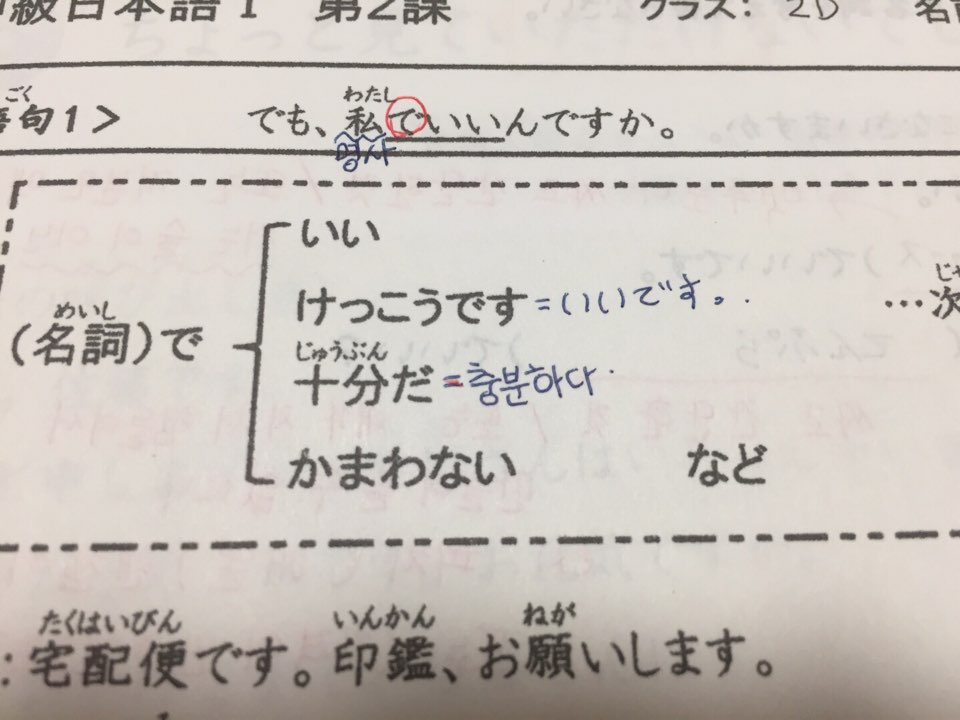 級日本語1 第2課 クラス: 2D
ごく わたし
句1> でも、私でいいんですか。
명사
いい
けっこうです =いいです。
めいし
(名詞)で
じゅうぶん
十分だ =충분하다
かまわない など
たくはいびん いんかん ねが
: 宅配便です。印鑑、お願いします。